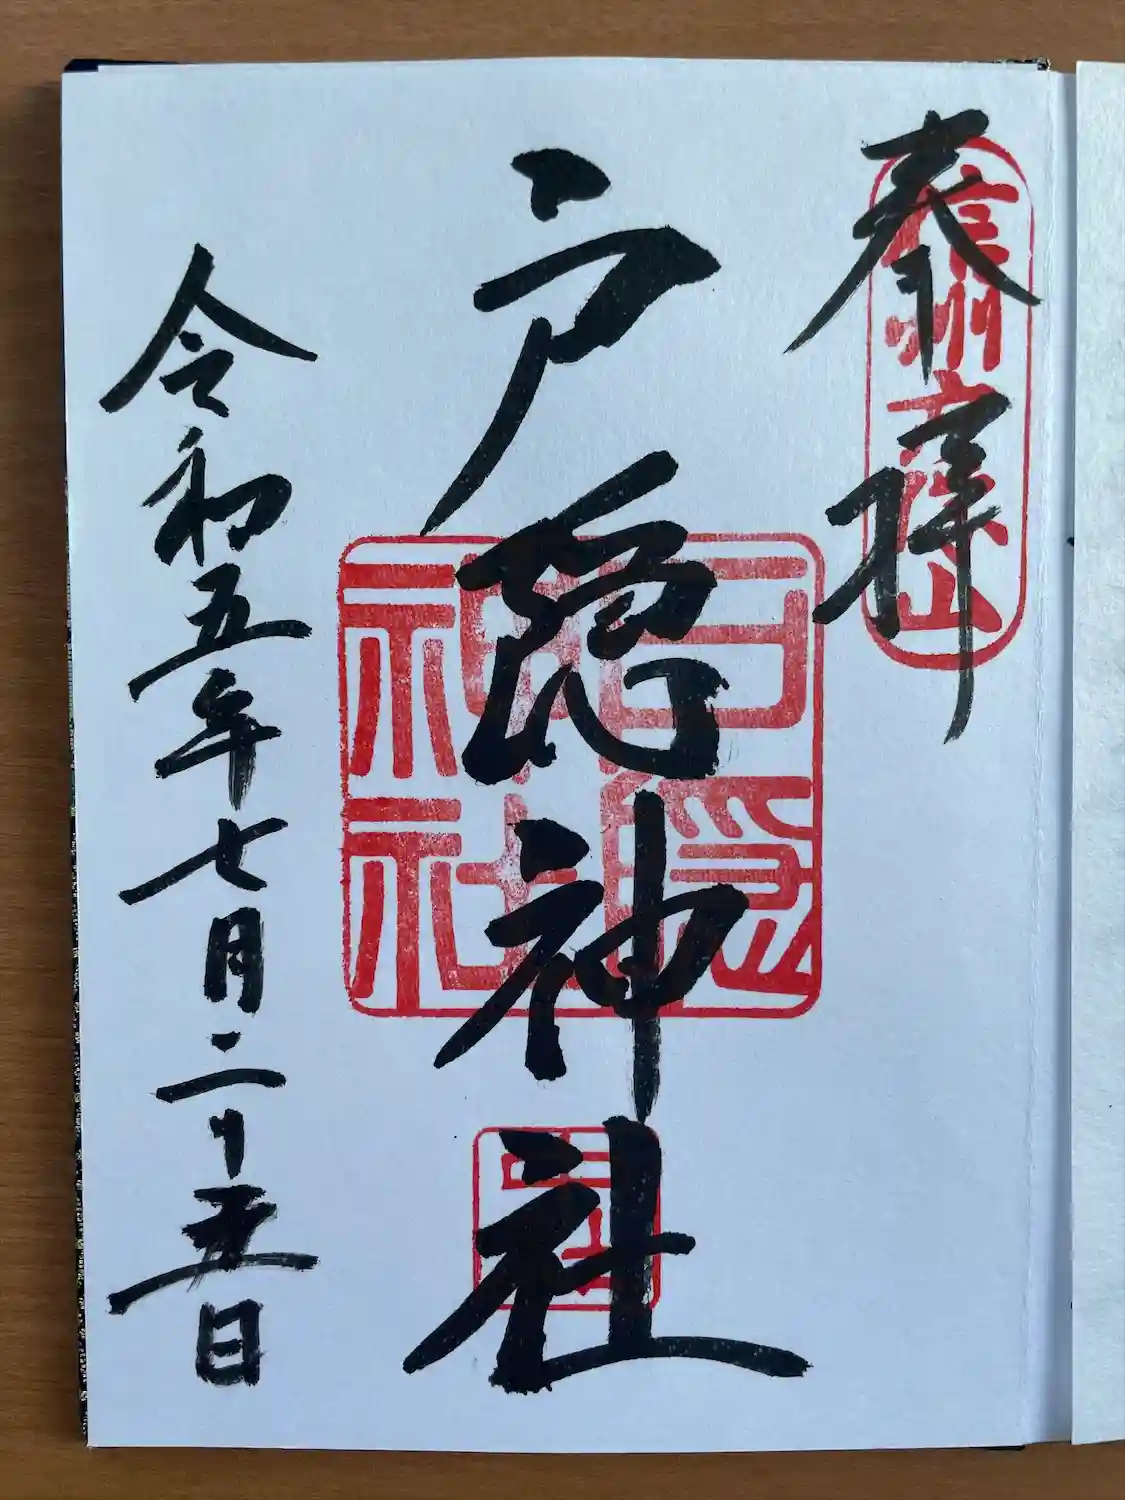 奉拝
信州戸隠山
戸隠神社
戸隠
神社
令和五年七月二十五日